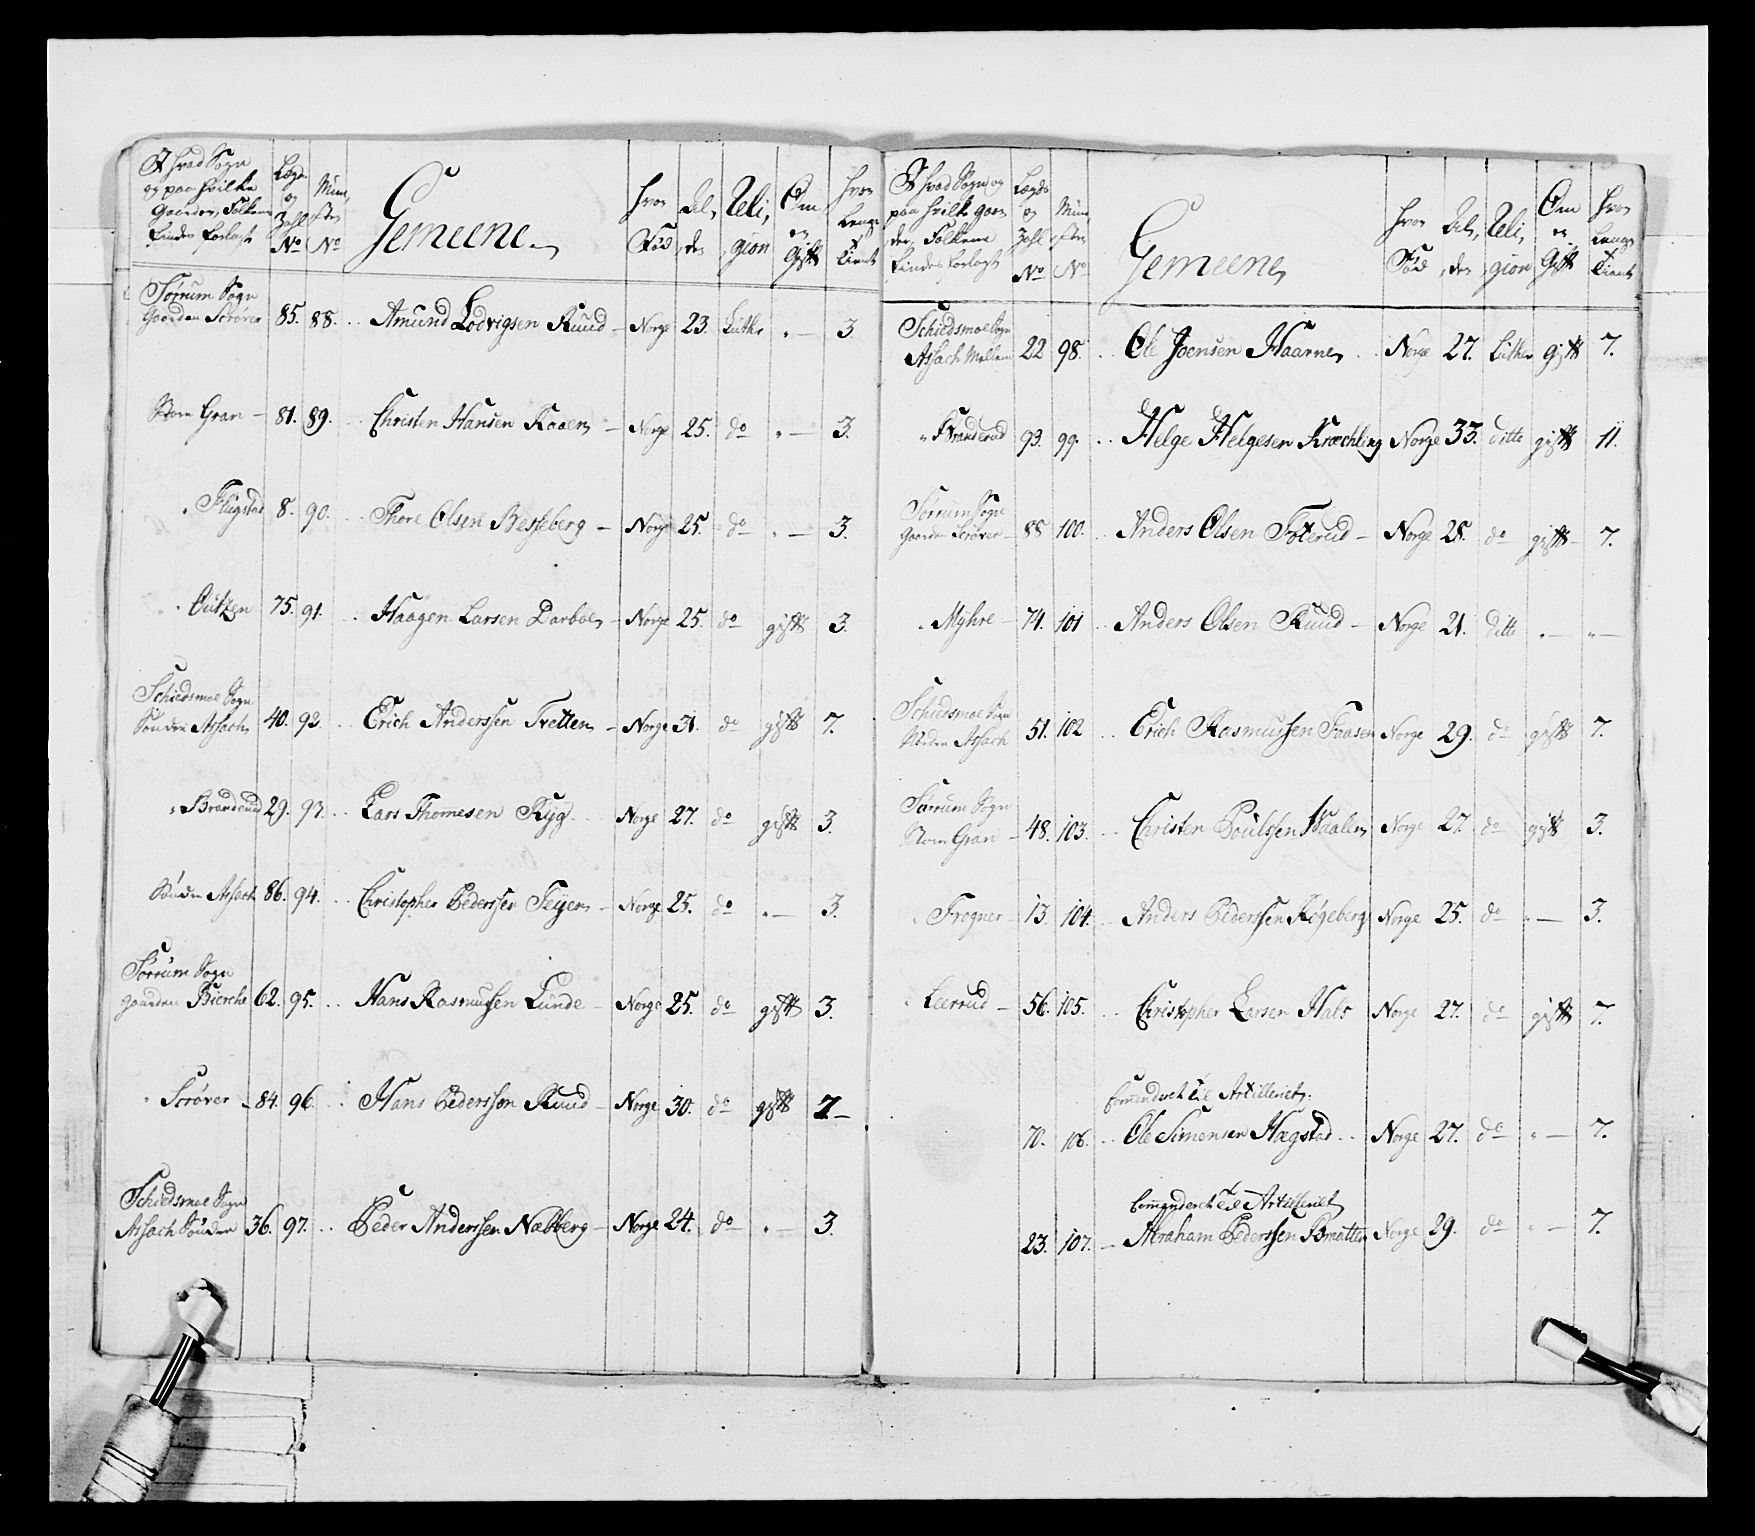 I hvad Sogn og paa hvilke Gaarder, Folkene findes forlagt | Lægs og Zahl No | Mün, ster No | Gemeene | Hvor Fød | Al, der | Reli, gion | Om er Gift | Hvor Længe tient
Sørrum Sogn
Gaarden Scrøver 85. 88. Amund Lodvigsen Ruud Norge 23. Luthr " 3
Store Gran 81. 89. Christen Hansen Kaaen Norge 25. do " 3.
" Flügstad 8. 90. Thore Olsen Besseberg Norge 25. do " 3.
" Outzen 75. 91. Haagen Larsen Darboe Norge 25. do gift 3.
Schiedsmoe Sogn
Sønden Assach 40. 92. Erich Anderssen Tvetten Norge 31. do gift 7.
" Branderud 29. 93. Lars Thomesen Ryg Norge 27. do gift 3.
Sønden Assach 86. 94. Christopher Pederssen Feyer Norge 25. do " 3.
Sørrum Sogn
Gaarden Bierche 62. 95. Hans Rasmussen Lunde Norge 25. do gift 3.
" Scrøver 84. 96. Hans Pederssen Ruud Norge 30. do gift 7
Schiedsmoe Sogn
Assach Sønden 36. 97. Peder Anderssen Nabberg Norge 24. do " 3.
I hvad Sogn og paa hvilke Gaarder, Folkene findes forlagt | Lægds og Zahl No | Mün ster No | Gemeene | Hvor Fød | Al, der | Reli, gion | Om er Gift | Hvor Længe tient
Schiedsmoe Sogn
Assach Mellem 22 98. Ole Joensen Haarne Norge 27. Luther gift 7.
" Branderud 93. 99. Helge Helgesen Kræchling Norge 33. ditto gift 11.
Sørrum Sogn
Gaarden Scrøver 88 100. Anders Olsen Foterud Norge 28. do gift 7.
" Myhre 74. 101 Anders Olsen Ruud Norge 21. ditto " "
Schiedsmoe Sogn
Neden Assach 51. 102 Erich Rasmussen Faasen Norge 29. do gift 7.
Sørrum Sogn
Store Gran 48. 103. Christen Poulssen Haalen Norge 27. do gift 3.
" Frogner 13 104. Anders Pederssen Køgeberg Norge 25. do " 3.
" Leerud 56. 105. Christopher Larsen Hals Norge 27. do gift 7.
Comenderet til Artilleriet.
70. 106. Ole Simensen Hægstad Norge 27. do " 7.
Comenderet til Artilleriet
23. 107. Abraham Pederssen Bratten Norge 29. do " 7.